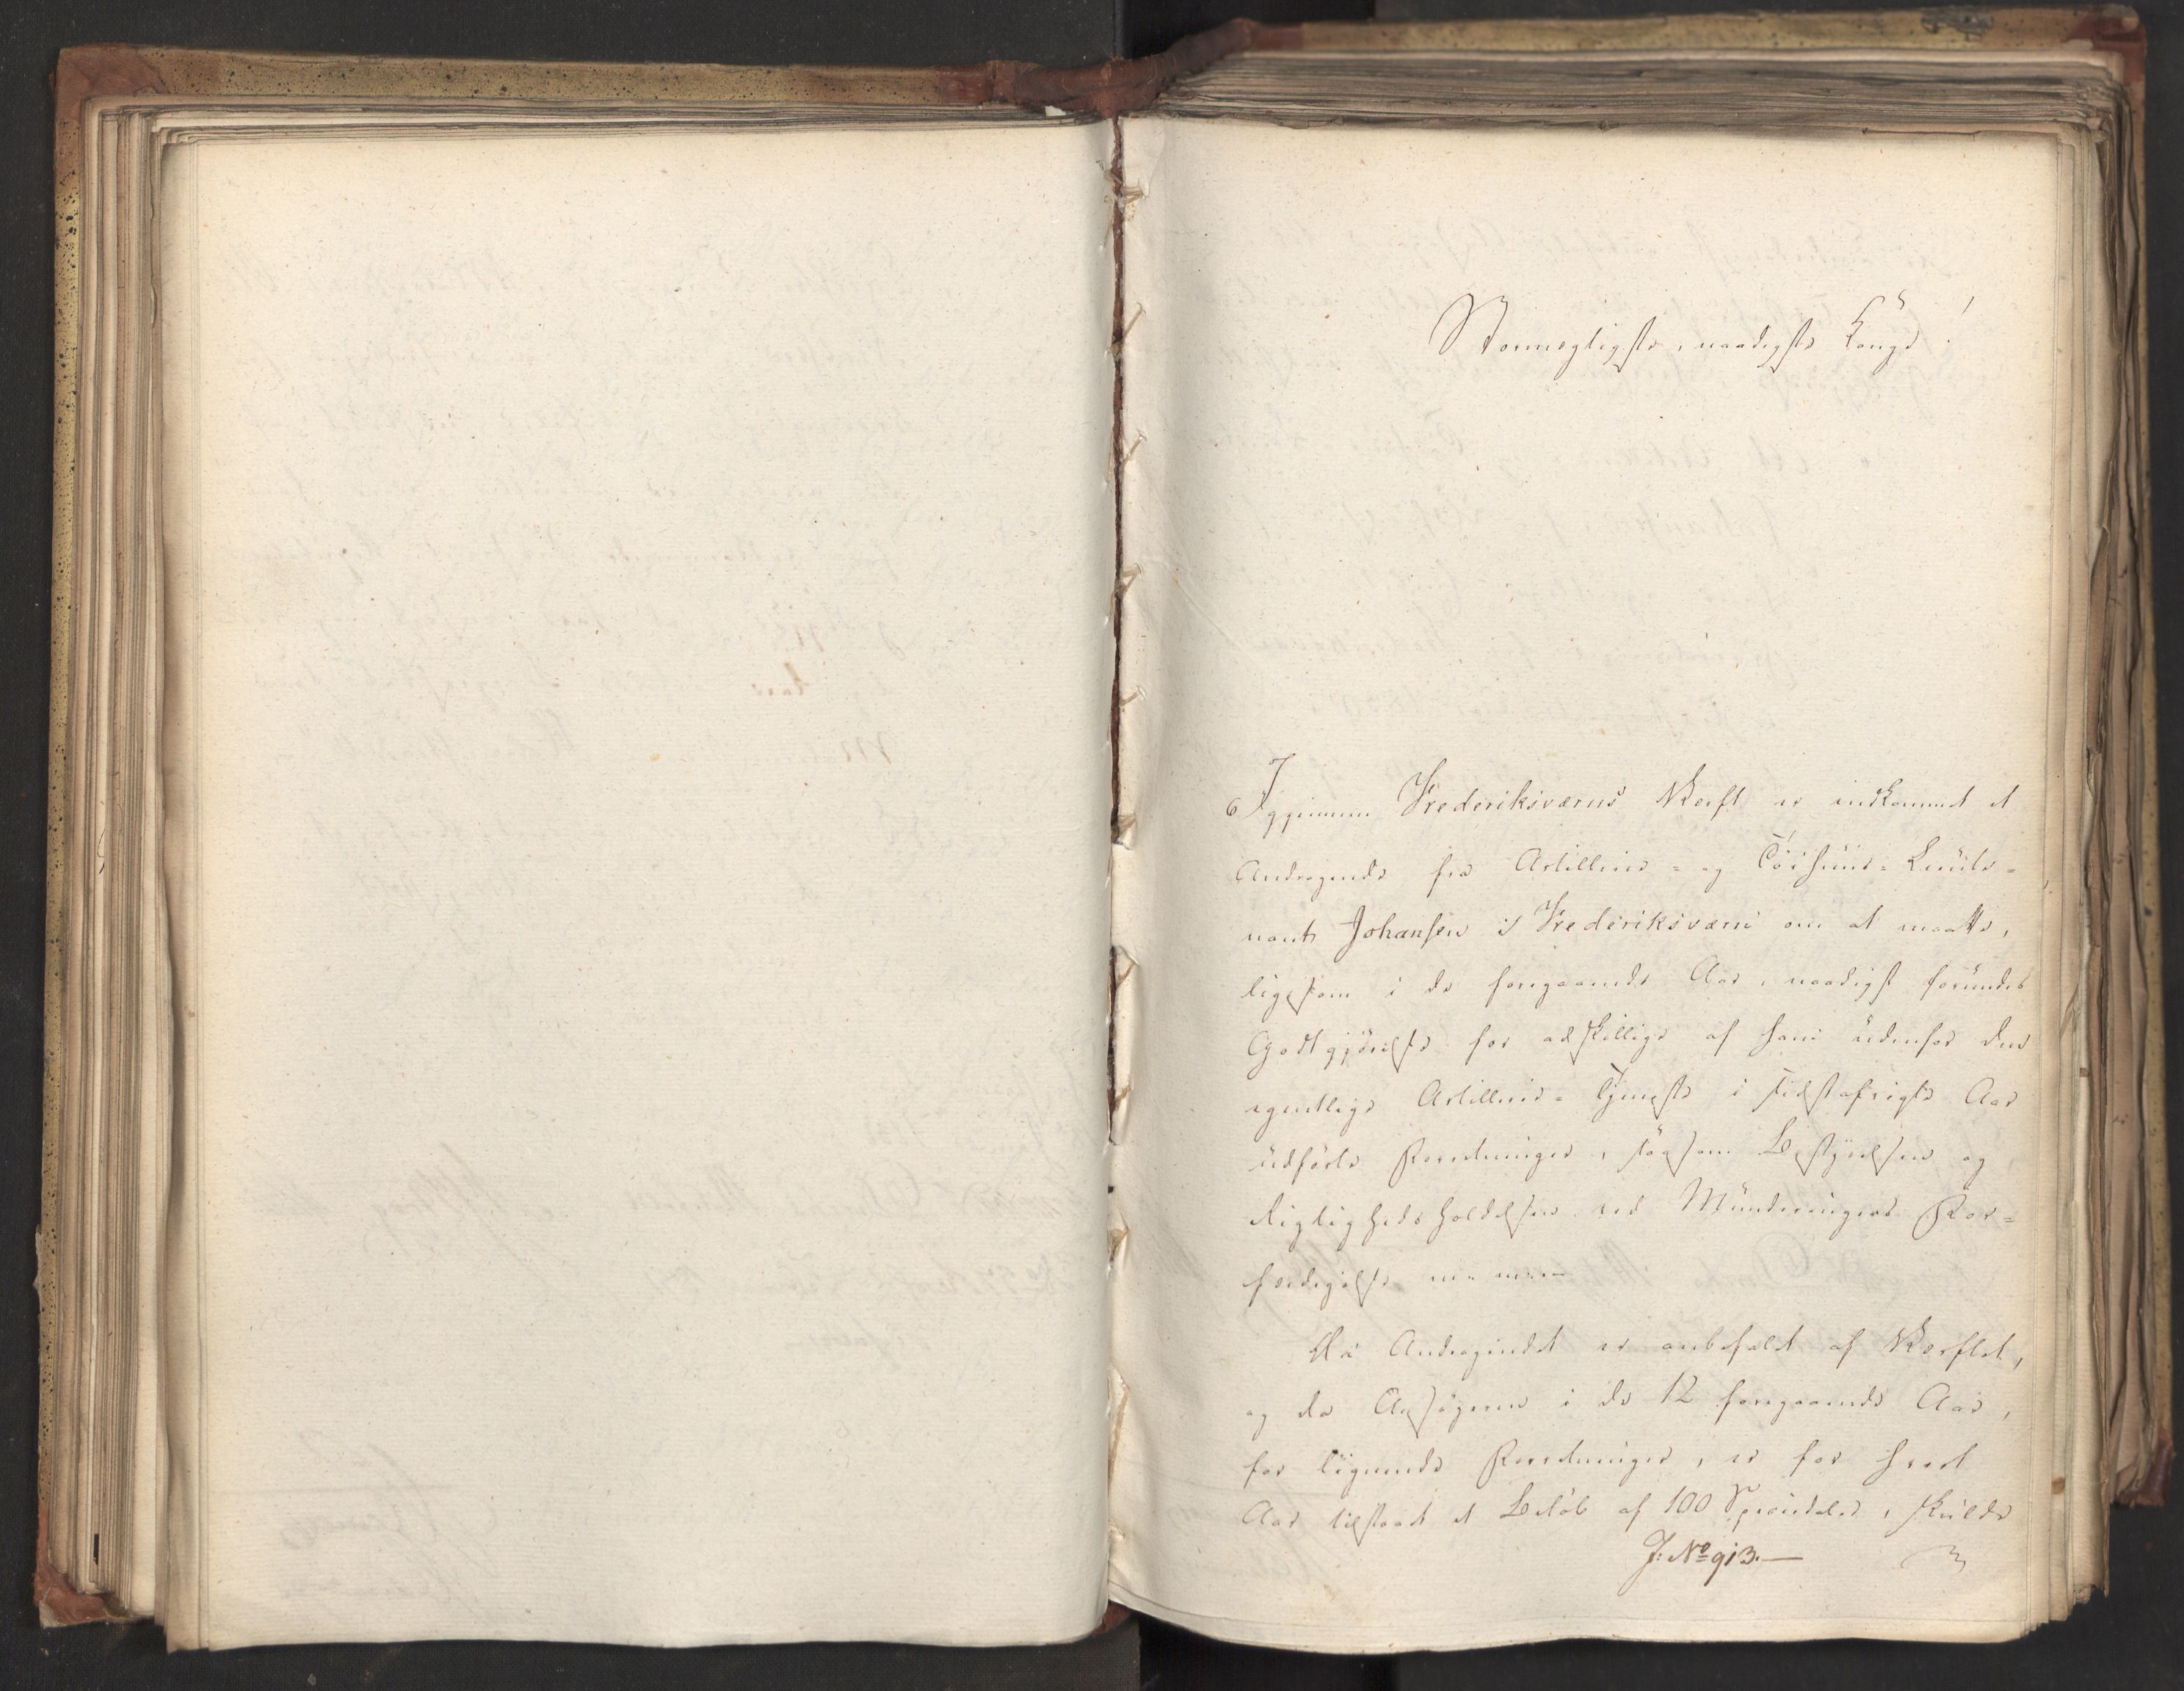 Stormægtigste, naadigste Konge!
Igjennem Frederiksværns Værft er indkommet et
Andragende fra Artillerie- og Töihuus-Lieute-
nant Johansen i Frederiksværn om at maatte,
ligesom i de foregaaende Aar, naadigst forundes
Godtgjörelse for adskillige af ham udenfor den
egentlige Artillerie-Tjeneste i sidstafvigte Aar
udförte Forretninger, saasom Bestyrelsen og
Rigtighedsholdelsen ved Munderingers For-
færdigelse m. m.
Da Andragendet er anbefalet af Værftet,
og da Ansögeren i de 12 foregaaende Aar,
for lignende Forretninger, er for hvert
Aar tilstaaet et Belöb af 100 Speciedaler, skulde
J: No 913.—